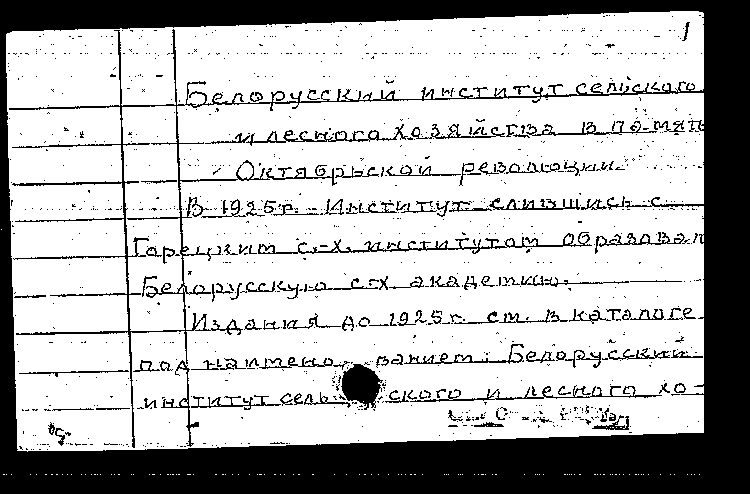 1
Белорусский институт сельского
и лесного хозяйства в память
Октябрьской революции.
В 1925г. Институт слившись с
Горецким с.-х. институтом образовал
Белорусскую с-х. академию.
Издания до 1925г. см. в каталоге
под наимено ванием: Белорусский
институт сель ского и лесного хо-